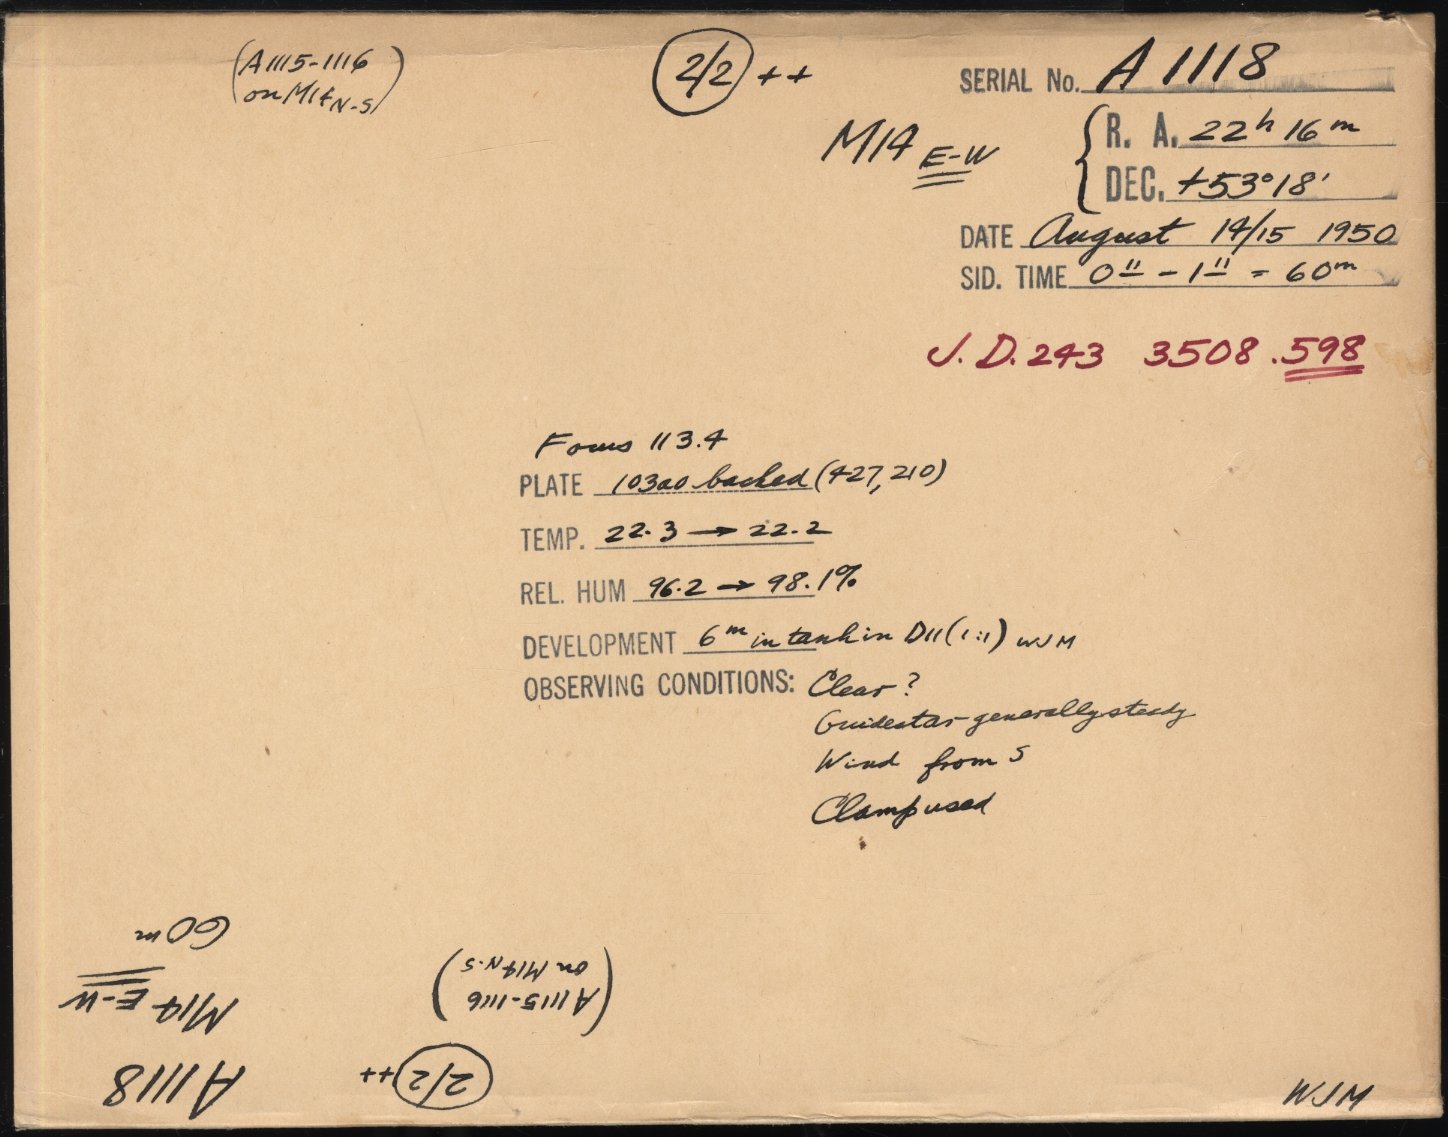 (A1115-1116
on M14 N-S)
2/2 ++
SERIAL No. A 1118
M14 E-W
R. A. 22h 16m
DEC. +53°18'
DATE August 14/15 1950
SID. TIME 0h - 1h = 60m
J. D. 243 3508.598
Focus 113.4
PLATE 103aO backed (427,210)
TEMP. 22.3 → 22.2
REL. HUM 96.2 → 98.1%
DEVELOPMENT 6m in tank in D11 (1:1) WJM
OBSERVING CONDITIONS: Clear?
Guidestar generally steady
Wind from S
Clamp used
A1118
M14 E-W
60m
2/2 ++
(A1115-1116
on M14 N-S)
WJM